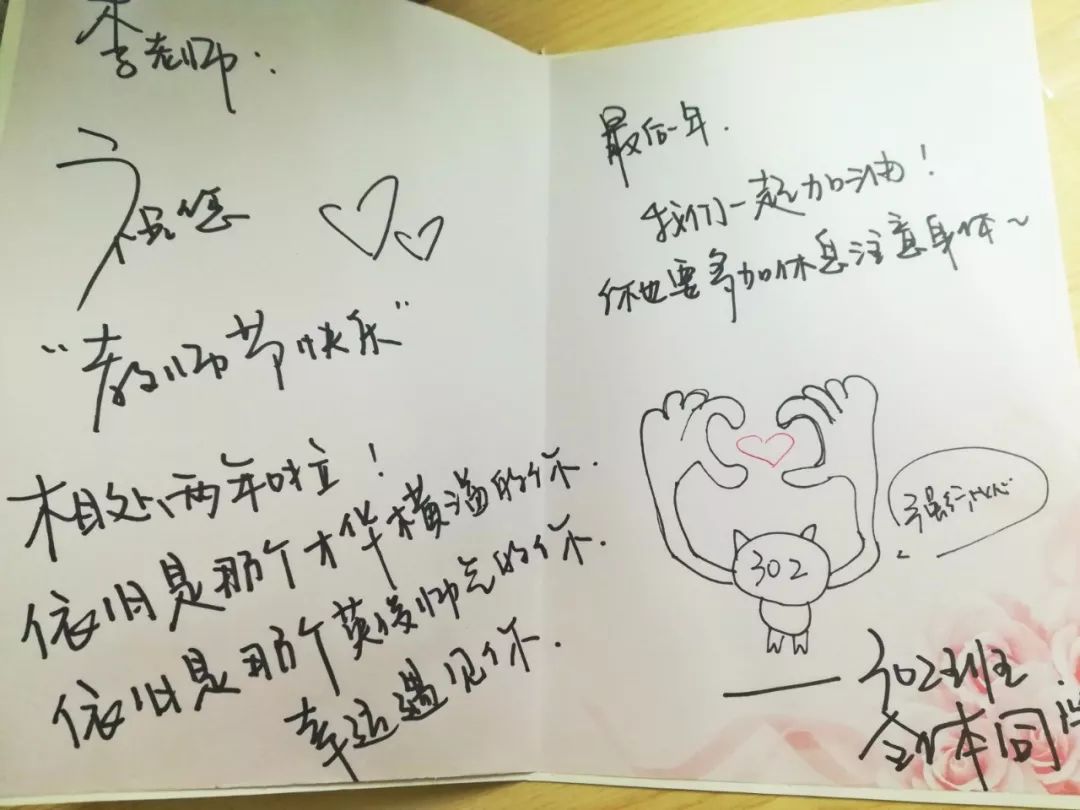 李老师:
祝您
“教师节快乐”
相处两年啦!
依旧是那个才华横溢的你.
依旧是那个英俊帅气的你.
幸运遇见你.
最后一年.
我们一起加油!
你也要多加休息注意身体~
302
手最行比心
——302班.
全体同